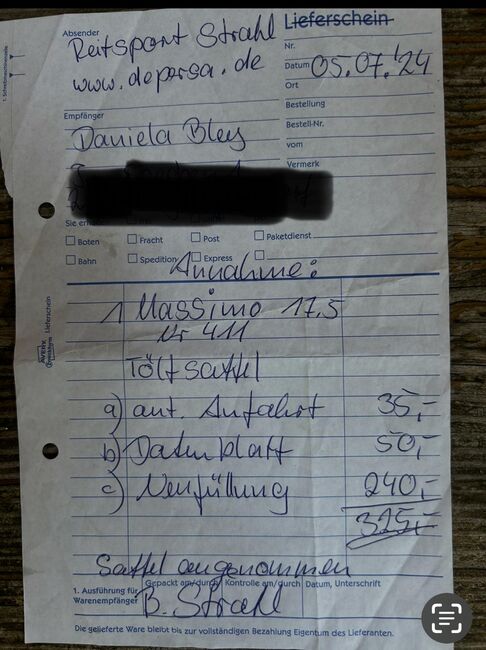 Absender
Lieferschein
Reitsport Strahl
Nr.
www.deporsa.de
Datum 05.07.'24
Ort
Empfänger
Bestellung
Daniela Bley
Bestell-Nr.
vom
Vermerk
Sie
Boten Fracht Post Paketdienst
Bahn Spedition Express
Annahme:
1 Massimo 17,5
Nr 411
Töltsattel
a) ant. Anfahrt 35,-
b) Datenblatt 50,-
c) Neufüllung 240,-
325,-
Sattel angenommen
Gepackt am/durch Kontrolle am/durch Datum, Unterschrift
1. Ausführung für
Warenempfänger
B. Strahl
Die gelieferte Ware bleibt bis zur vollständigen Bezahlung Eigentum des Lieferanten.
AVERY Zweckform Lieferschein